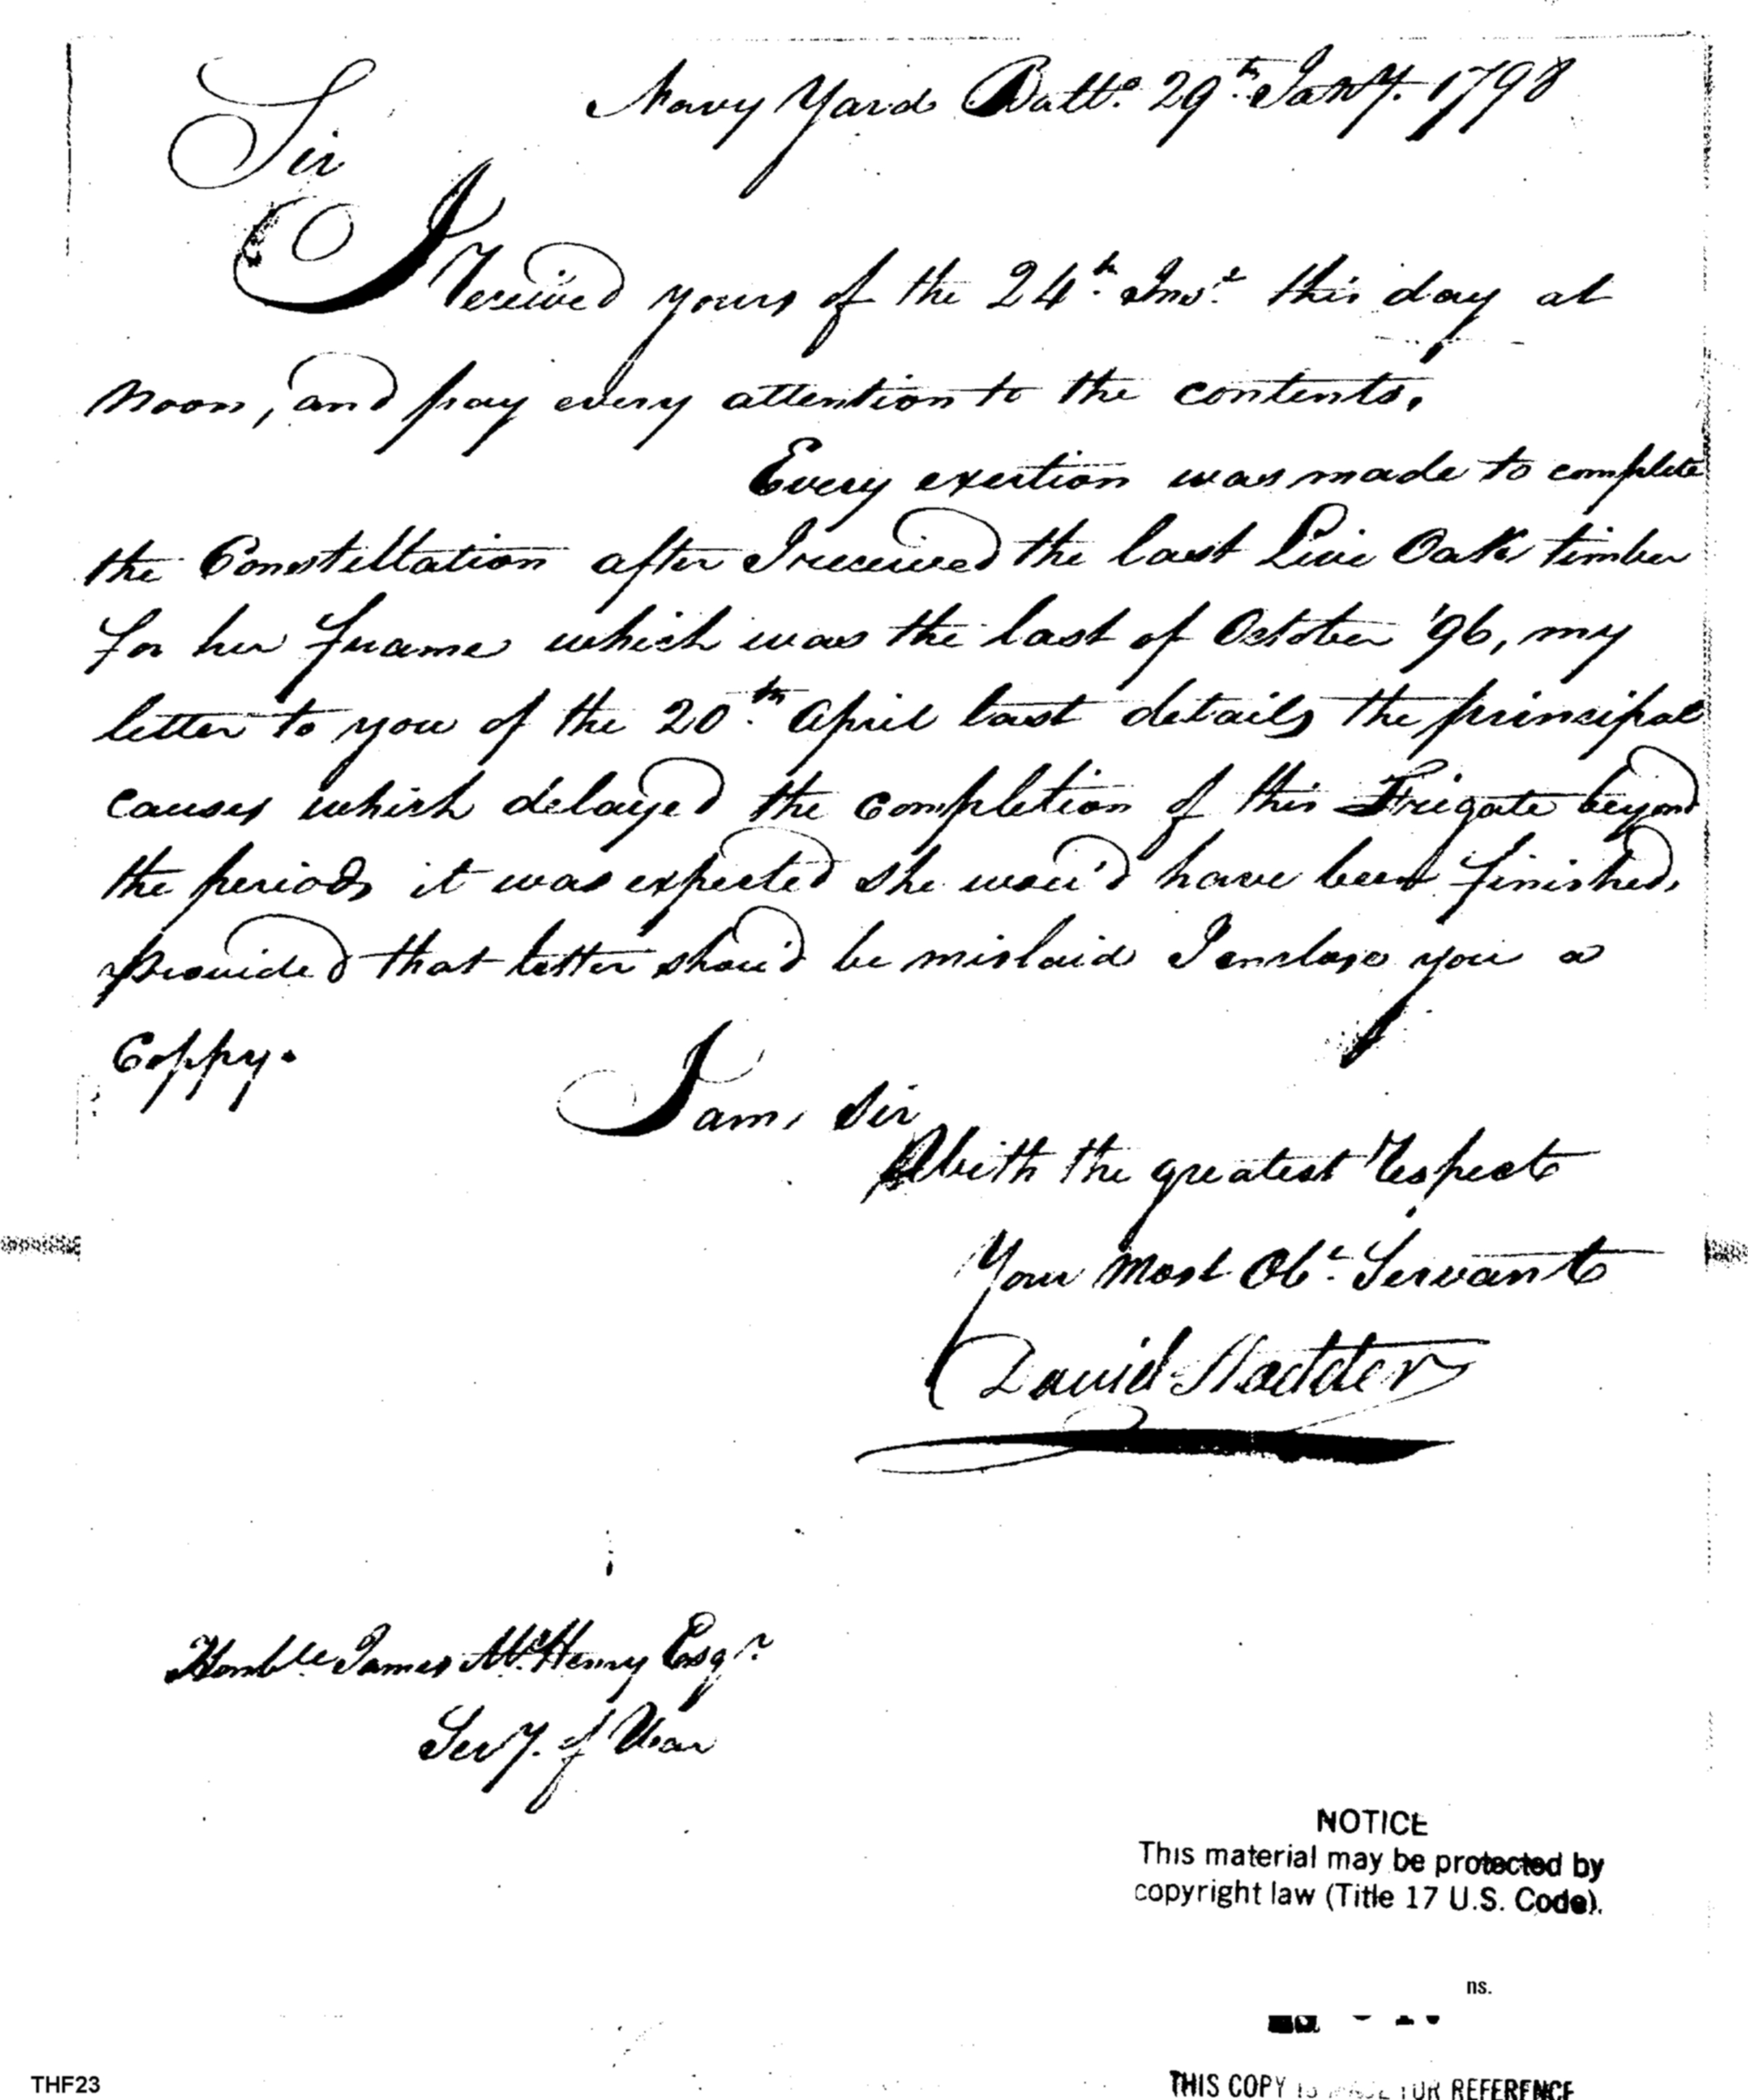 Navy Yard Balto. 29th. Jany. 1798
Sir
I received yours of the 24th. Inst. this day at
noon, and pay every attention to the contents.
Every exertion was made to complete
the Constellation after I received the last Live Oak timber
for her frame which was the last of October '96, my
letter to you of the 20th. April last details the principal
causes which delayed the completion of this Frigate beyond
the periods it was expected she wou'd have been finished,
provided that letter shou'd be mislaid I enclose you a
Coppy.
I am, Sir
With the greatest respect
Your most Obt. Servant
David Stodder
Honble James McHenry Esqr.
Secy. of War
NOTICE
This material may be protected by
copyright law (Title 17 U.S. Code).
ns.
THF23
THIS COPY IS MADE FOR REFERENCE